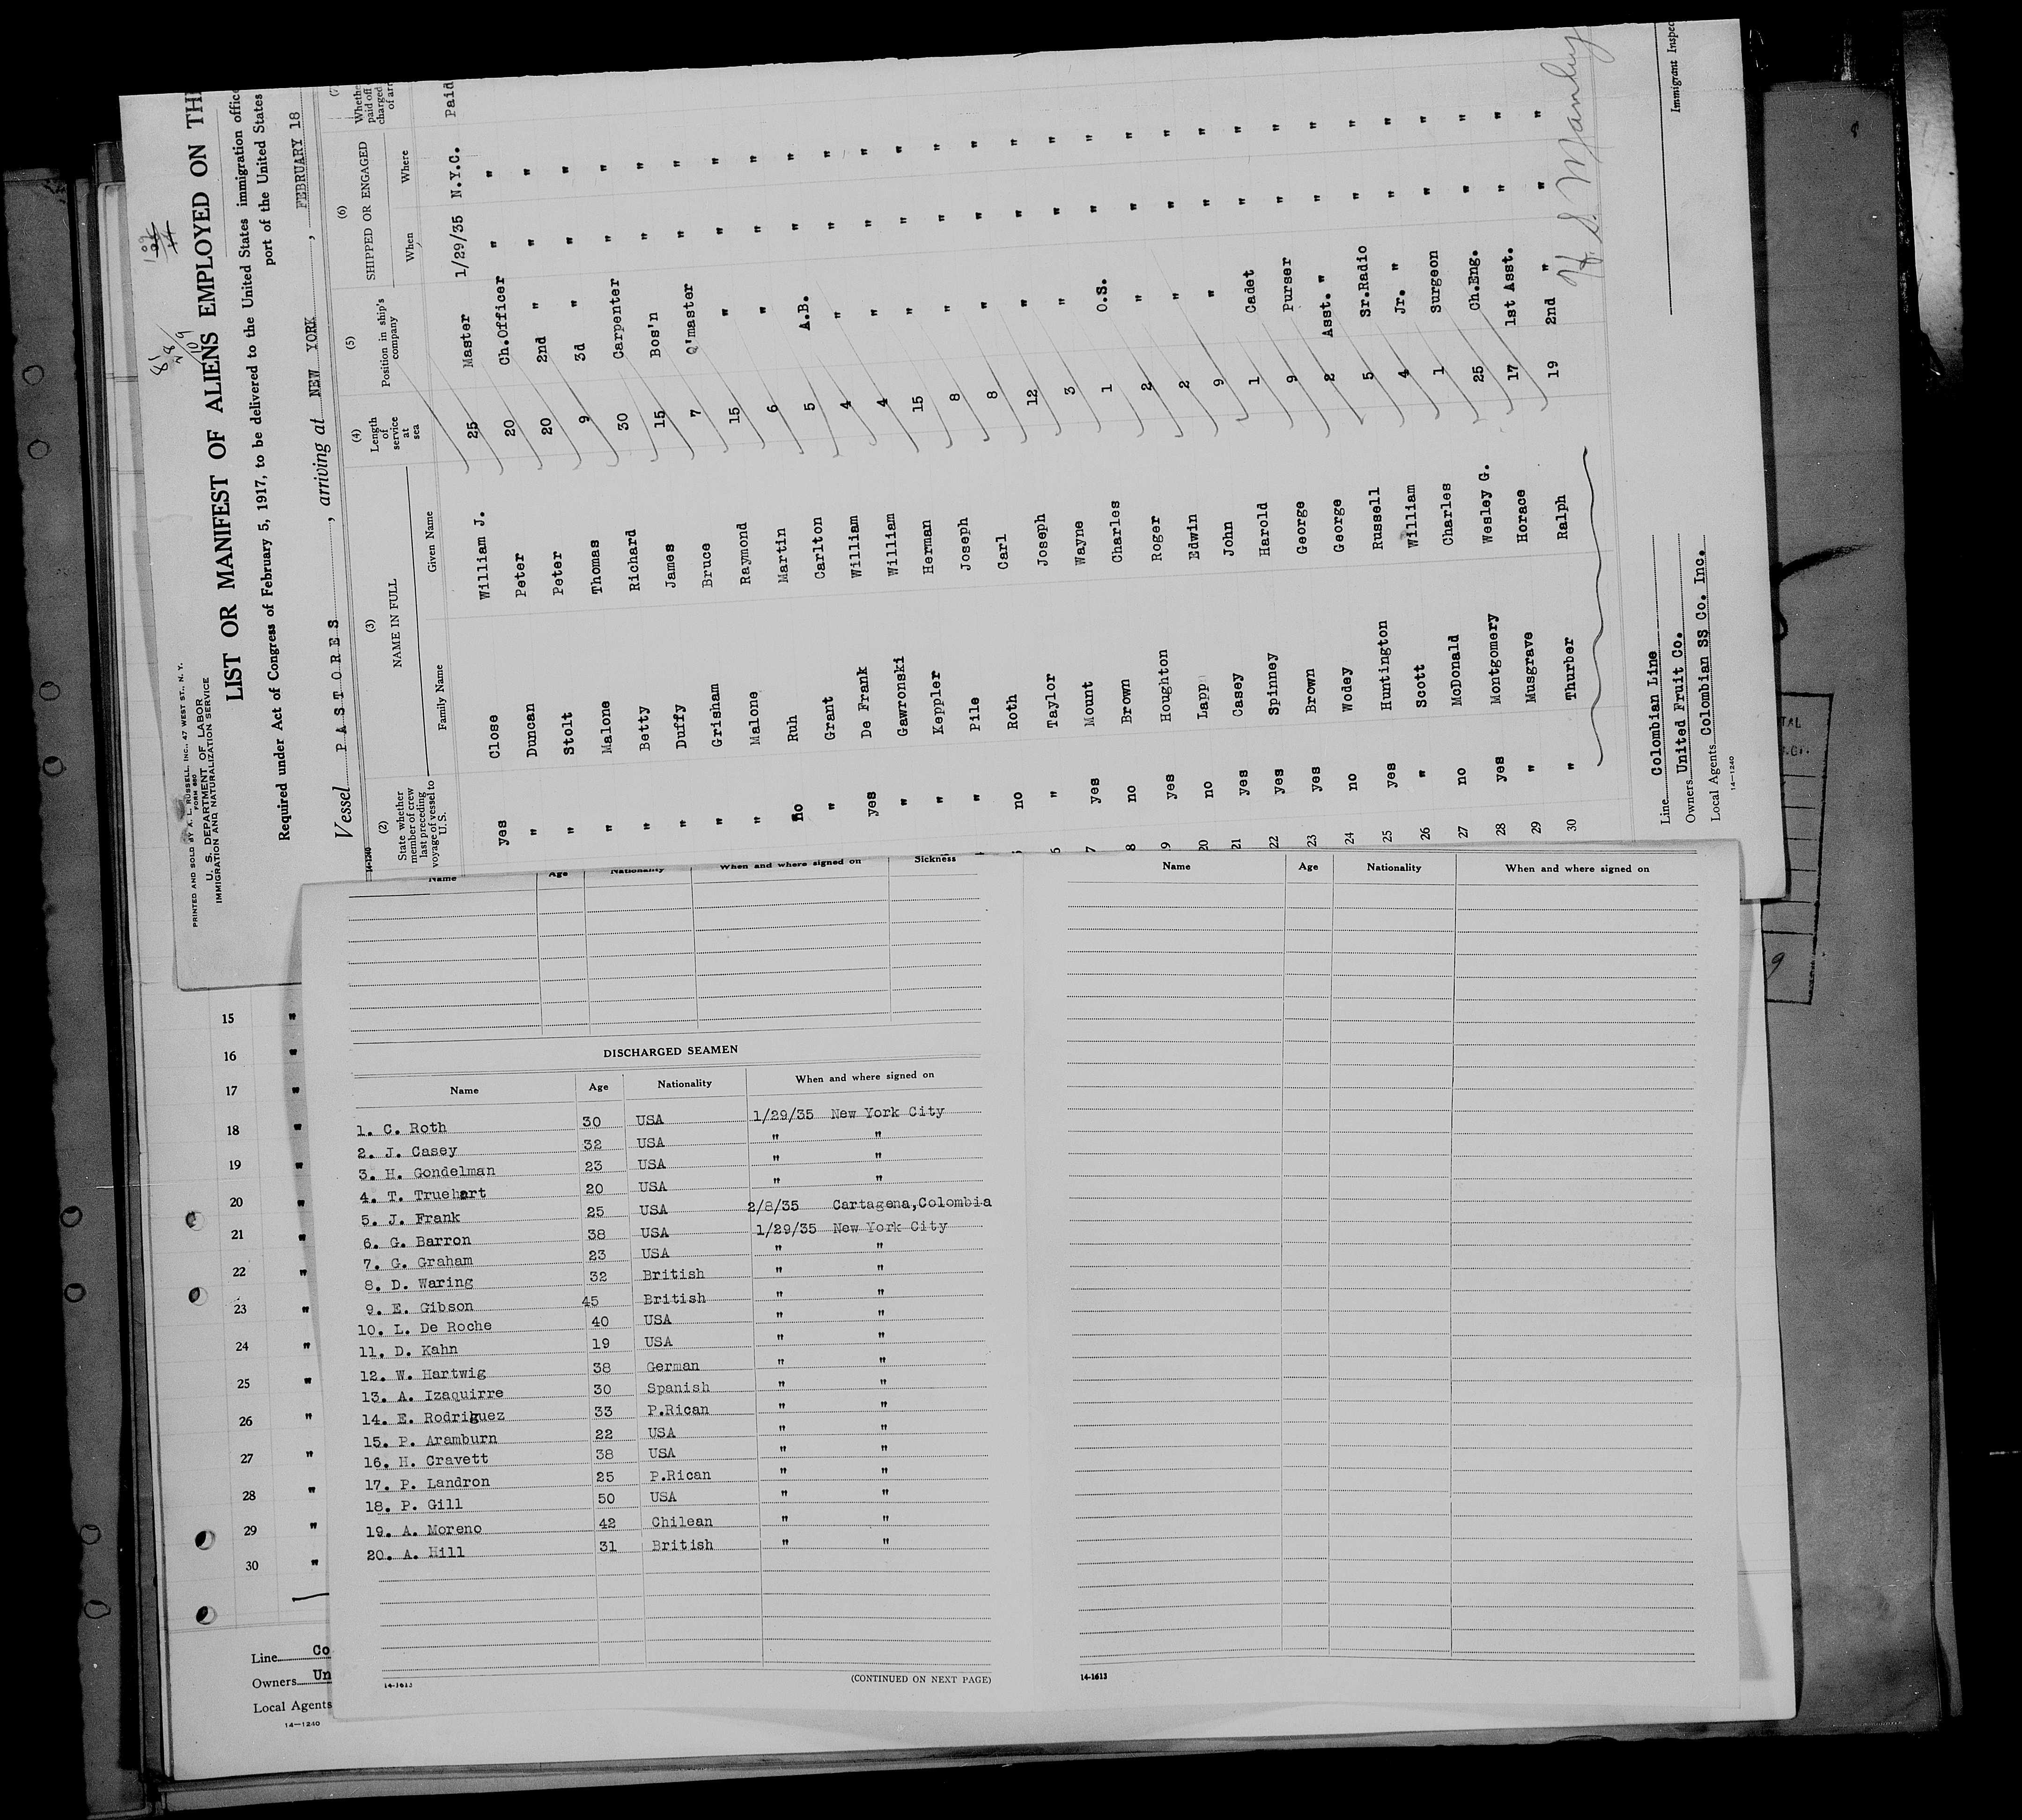 PRINTED AND SOLD BY A. L. RUSSELL, INC., 47 WEST ST., N. Y.
FORM 680
U. S. DEPARTMENT OF LABOR
IMMIGRATION AND NATURALIZATION SERVICE
LIST OR MANIFEST OF ALIENS EMPLOYED ON TH
Required under Act of Congress of February 5, 1917, to be delivered to the United States immigration offic
port of the United States
Vessel PASTORES , arriving at NEW YORK , FEBRUARY 18
14-1240
(2) State whether member of crew last preceding voyage of vessel to U. S.
(3) NAME IN FULL
Family Name Given Name
(4) Length of service at sea
(5) Position in ship's company
(6) SHIPPED OR ENGAGED
When Where
(7) Whethe paid off charged of arr
yes Close William J. 25 Master 1/29/35 N.Y.C. Paid
" Duncan Peter 20 Ch.Officer " "
" Stolt Peter 20 2nd " " "
" Malone Thomas 9 3d " " "
" Betty Richard 30 Carpenter " "
" Duffy James 15 Bos'n " "
" Grisham Bruce 7 Q'master " "
" Malone Raymond 15 " " "
no Ruh Martin 6 " " "
" Grant Carlton 5 A.B. " "
yes De Frank William 4 " " "
" Gawronski William 4 " " "
" Keppler Herman 15 " " "
" Pile Joseph 8 " " "
no Roth Carl 8 " " "
" Taylor Joseph 12 " " "
7 yes Mount Wayne 3 " " "
8 no Brown Charles 1 O.S. " "
9 yes Houghton Roger 2 " " "
20 no Lapp Edwin 2 " " "
21 yes Casey John 9 " " "
22 yes Spinney Harold 1 Cadet " "
23 yes Brown George 9 Purser " "
24 no Wodey George 2 Asst. " " "
25 yes Huntington Russell 5 Sr.Radio " "
26 " Scott William 4 Jr. " " "
27 no McDonald Charles 1 Surgeon " "
28 yes Montgomery Wesley G. 25 Ch.Eng. " "
29 " Musgrave Horace 17 1st Asst. " "
30 " Thurber Ralph 19 2nd " " "
H. S. Manley
Immigrant Inspec
Line Colombian Line
Owners United Fruit Co.
Local Agents Colombian SS Co. Inc.
14-1240
Name Age Nationality When and where signed on Sickness
DISCHARGED SEAMEN
Name Age Nationality When and where signed on
1. C. Roth 30 USA 1/29/35 New York City
2. J. Casey 32 USA " "
3. H. Gondelman 23 USA " "
4. T. Truehart 20 USA " "
5. J. Frank 25 USA 2/8/35 Cartagena,Colombia
6. G. Barron 38 USA 1/29/35 New York City
7. G. Graham 23 USA " "
8. D. Waring 32 British " "
9. E. Gibson 45 British " "
10. L. De Roche 40 USA " "
11. D. Kahn 19 USA " "
12. W. Hartwig 38 German " "
13. A. Izaquirre 30 Spanish " "
14. E. Rodriguez 33 P.Rican " "
15. P. Aramburn 22 USA " "
16. H. Cravett 38 USA " "
17. P. Landron 25 P.Rican " "
18. P. Gill 50 USA " "
19. A. Moreno 42 Chilean " "
20. A. Hill 31 British " "
14-1613
(CONTINUED ON NEXT PAGE)
Name Age Nationality When and where signed on
14-1613
15 "
16 "
17 "
18 "
19 "
20 "
21 "
22 "
23 "
24 "
25 "
26 "
27 "
28 "
29 "
30 "
Line Co
Owners Un
Local Agents
14-1240